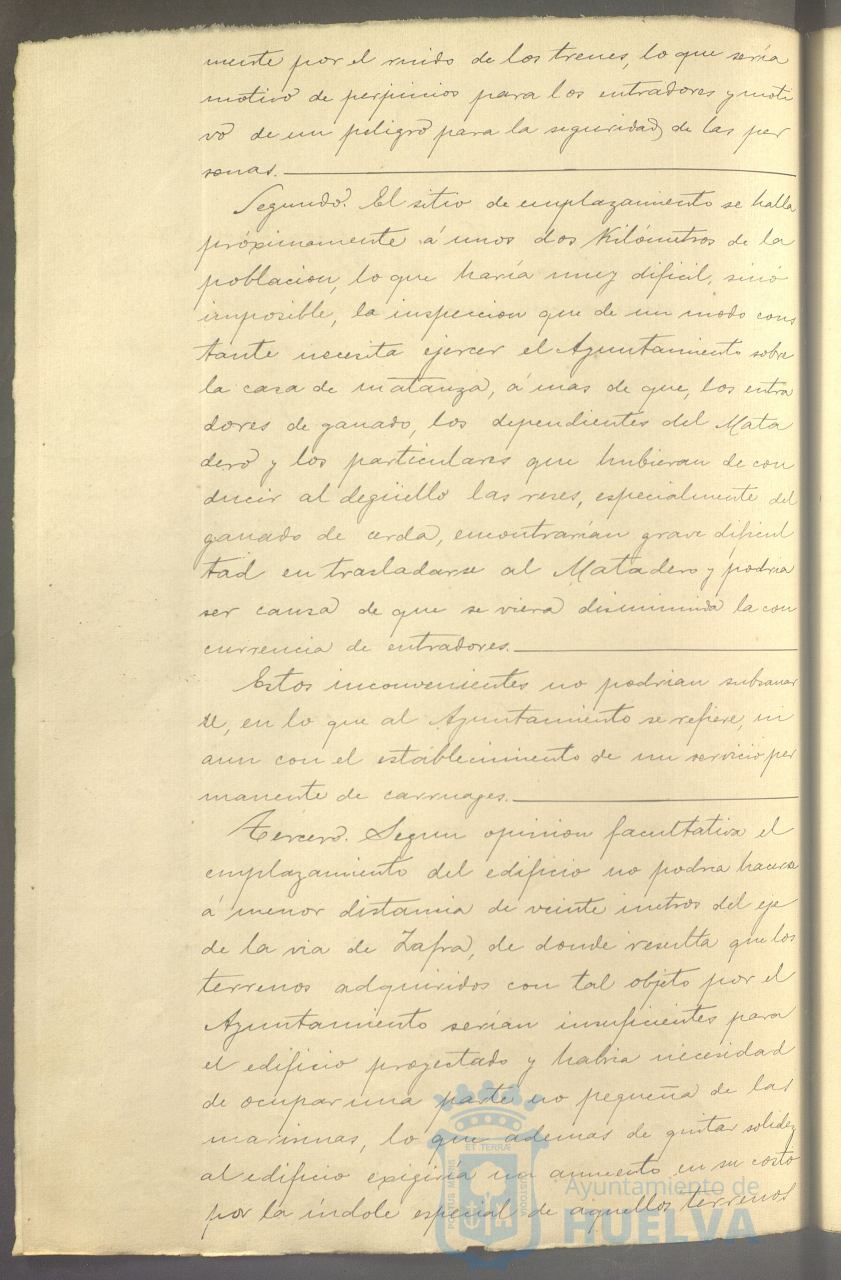 mente por el ruido de los trenes, lo que sería
motivo de perjuicios para los entradores y moti
vo de un peligro para la seguridad de las per
sonas.
Segundo. El sitio de emplazamiento se halla
próximamente á unos dos Kilómetros de la
poblacion, lo que haría muy dificil, sinó
imposible, la inspeccion que de un modo cons
tante necesita ejercer el Ayuntamiento sobre
la casa de matanza, á mas de que, los entra
dores de ganado, los dependientes del Mata
dero y los particulares que hubieran de con
ducir al degüello las reses, especialmente del
ganado de cerda, encontrarían grave dificul
tad en trasladarse al Matadero y podria
ser causa de que se viera disminuida la con
currencia de entradores.
Estos inconvenientes no podrian subsanar
se, en lo que al Ayuntamiento se refiere, ni
aun con el establecimiento de un servicio per
manente de carruages.
Tercero. Segun opinion facultativa el
emplazamiento del edificio no podria hacerse
á menor distancia de veinte metros del eje
de la via de Zafra, de donde resulta que los
terrenos adquiridos con tal objeto por el
Ayuntamiento serían insuficientes para
el edificio proyectado y habria necesidad
de ocupar una parte no pequeña de las
marismas, lo que ademas de quitar solidez
al edificio exigiría un aumento en su costo
por la índole especial de aquellos terrenos
PORTUS MARIS
ET TERRÆ
CUSTODIA
Ayuntamiento de
HUELVA